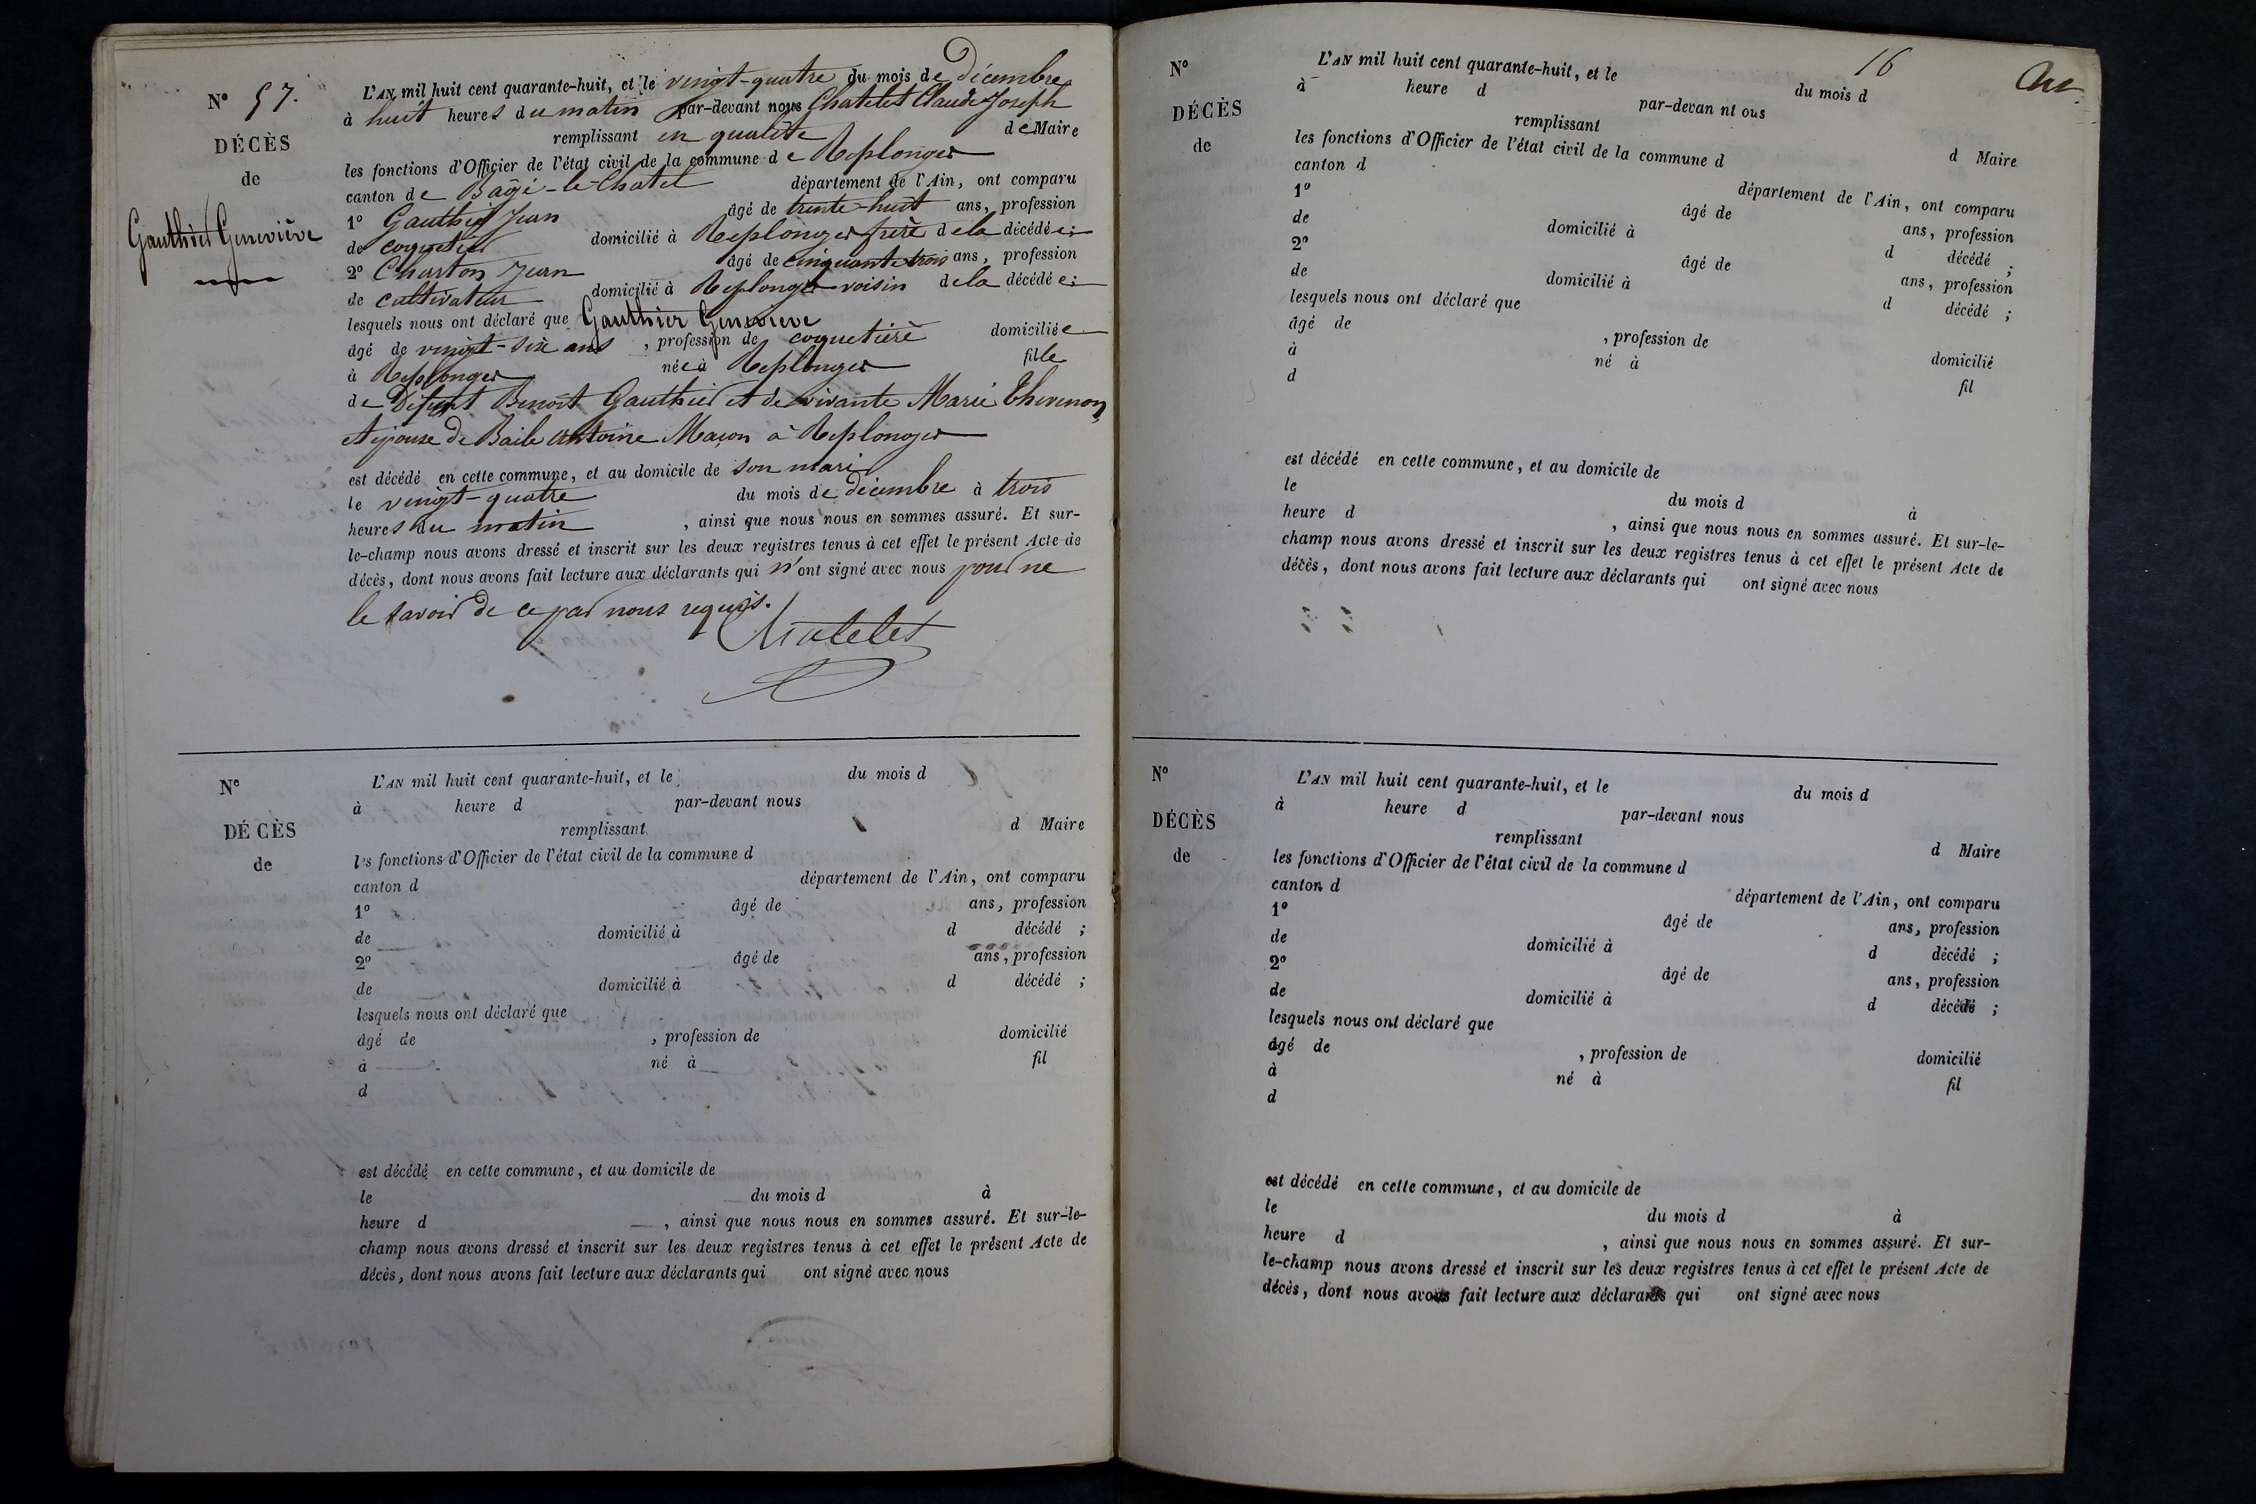 N° 57.
DÉCÈS
de
Gauthier Geneviève
L'AN mil huit cent quarante-huit, et le vingt-quatre du mois de Décembre
à huit heures du matin par-devant nous Chatelet Claude Joseph
remplissant en qualité de Maire
les fonctions d'Officier de l'état civil de la commune de Replonges
canton de Bagé-le-Chatel département de l'Ain, ont comparu
1° Gauthier Jean âgé de trente-huit ans, profession
de coquetier domicilié à Replonges frère de la décédée;
2° Charton Jean âgé de cinquante trois ans, profession
de cultivateur domicilié à Replonges voisin de la décédée;
lesquels nous ont déclaré que Gauthier Geneviève
âgé de vingt-six ans, profession de coquetière domiciliée
à Replonges née à Replonges fille
de Défunt Benoît Gauthier et de vivante Marie Thevenon
et épouse de Baile Antoine Maçon à Replonges
est décédé en cette commune, et au domicile de son mari
le vingt-quatre du mois de décembre à trois
heures du matin, ainsi que nous nous en sommes assuré. Et sur-
le-champ nous avons dressé et inscrit sur les deux registres tenus à cet effet le présent Acte de
décès, dont nous avons fait lecture aux déclarants qui n'ont signé avec nous pour ne
le savoir de ce par nous requis.
Chatelet
N°
DÉCÈS
de
L'AN mil huit cent quarante-huit, et le du mois d
à heure d par-devant nous
remplissant d Maire
les fonctions d'Officier de l'état civil de la commune d
canton d département de l'Ain, ont comparu
1° âgé de ans, profession
de domicilié à d décédé ;
2° âgé de ans, profession
de domicilié à d décédé ;
lesquels nous ont déclaré que
âgé de , profession de domicilié
à né à fil
d
est décédé en cette commune, et au domicile de
le du mois d à
heure d , ainsi que nous nous en sommes assuré. Et sur-le-
champ nous avons dressé et inscrit sur les deux registres tenus à cet effet le présent Acte de
décès, dont nous avons fait lecture aux déclarants qui ont signé avec nous
16
N°
DÉCÈS
de
L'AN mil huit cent quarante-huit, et le du mois d
à heure d par-devan nt ous
remplissant d Maire
les fonctions d'Officier de l'état civil de la commune d
canton d département de l'Ain, ont comparu
1° âgé de ans, profession
de domicilié à d décédé ;
2° âgé de ans, profession
de domicilié à d décédé ;
lesquels nous ont déclaré que
âgé de , profession de domicilié
à né à fil
d
est décédé en cette commune, et au domicile de
le du mois d à
heure d , ainsi que nous nous en sommes assuré. Et sur-le-
champ nous avons dressé et inscrit sur les deux registres tenus à cet effet le présent Acte de
décès, dont nous avons fait lecture aux déclarants qui ont signé avec nous
N°
DÉCÈS
de
L'AN mil huit cent quarante-huit, et le du mois d
à heure d par-devant nous
remplissant d Maire
les fonctions d'Officier de l'état civil de la commune d
canton d département de l'Ain, ont comparu
1° âgé de ans, profession
de domicilié à d décédé ;
2° âgé de ans, profession
de domicilié à d décédé ;
lesquels nous ont déclaré que
âgé de , profession de domicilié
à né à fil
d
est décédé en cette commune, et au domicile de
le du mois d à
heure d , ainsi que nous nous en sommes assuré. Et sur-
le-champ nous avons dressé et inscrit sur les deux registres tenus à cet effet le présent Acte de
décès, dont nous avons fait lecture aux déclarants qui ont signé avec nous